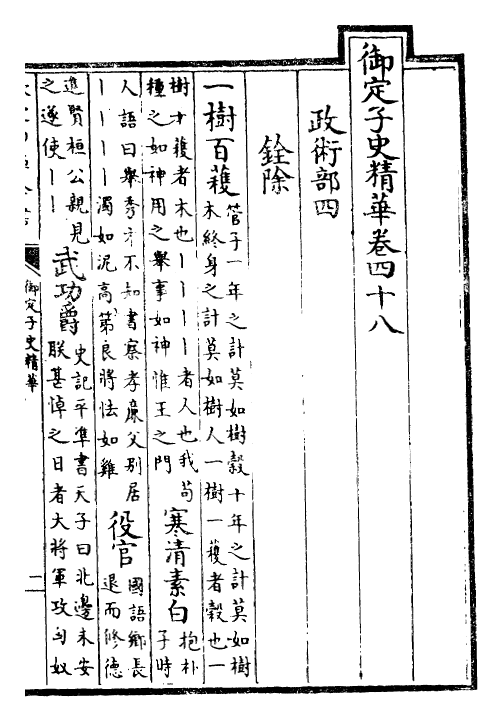 御定子史精華卷四十八
政術部四
銓除
一樹百穫
管子一年之計莫如樹穀十年之計莫如樹
木終身之計莫如樹人一樹一穫者穀也一
樹十穫者木也丨丨丨丨者人也我苟
種之如神用之舉事如神惟王之門
寒清素白
抱朴
子時
人語曰舉秀才不知書察孝廉父别居
丨丨丨丨濁如泥高第良將怯如雞
役官
國語鄉長
退而修德
進賢桓公親見
之遂使丨丨
武功爵
史記平準書天子曰北邊未安
朕甚悼之日者大將軍攻匈奴
御定子史精華